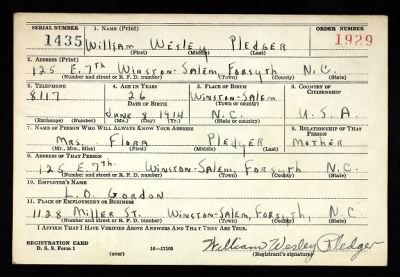 SERIAL NUMBER 1. NAME (Print) ORDER NUMBER
1435 William Wesley Pledger 1929
(First) (Middle) (Last)
2. ADDRESS (Print)
125 E. 7th Winston-Salem, Forsyth N.C.
(Number and street or R. F. D. number) (Town) (County) (State)
3. TELEPHONE 4. AGE IN YEARS 5. PLACE OF BIRTH 6. COUNTRY OF CITIZENSHIP
8117 26 Winston-Salem
DATE OF BIRTH (Town or county)
June 8 1914 N.C. U.S.A.
(Exchange) (Number) (Mo.) (Day) (Yr.) (State or country)
7. NAME OF PERSON WHO WILL ALWAYS KNOW YOUR ADDRESS 8. RELATIONSHIP OF THAT PERSON
Mrs. Flora Pledger Mother
(Mr., Mrs., Miss) (First) (Middle) (Last)
9. ADDRESS OF THAT PERSON
125 E. 7th. Winston-Salem, Forsyth N.C.
(Number and street or R. F. D. number) (Town) (County) (State)
10. EMPLOYER'S NAME
L.O. Gordon
11. PLACE OF EMPLOYMENT OR BUSINESS
1128 Miller St. Winston-Salem, Forsyth, N.C.
(Number and street or R. F. D. number) (Town) (County) (State)
I AFFIRM THAT I HAVE VERIFIED ABOVE ANSWERS AND THAT THEY ARE TRUE.
REGISTRATION CARD
D. S. S. Form 1 16—17105 William Wesley Pledger
(over) (Registrant's signature)